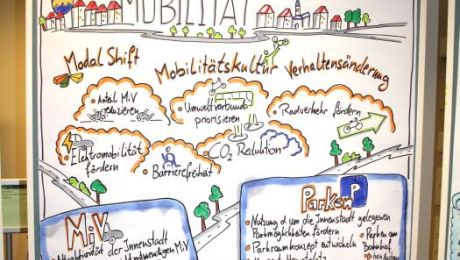 MOBILITÄT
Modal Shift
Mobilitätskultur
Verhaltensänderung
• Anteil MiV
reduzieren
• Umweltverbund
priorisieren
• Radverkehr fördern
• Elektromobilität
fördern
• Barrierefreiheit
• CO2 Reduktion
MiV
Attraktivität der Innenstadt
notwendigen MiV
Parken P
• Nutzung d um die Innenstadt gelegenen
Parkmöglichkeiten fördern
• Parkraumkonzept entwickeln
• Parken am
Bahnhof